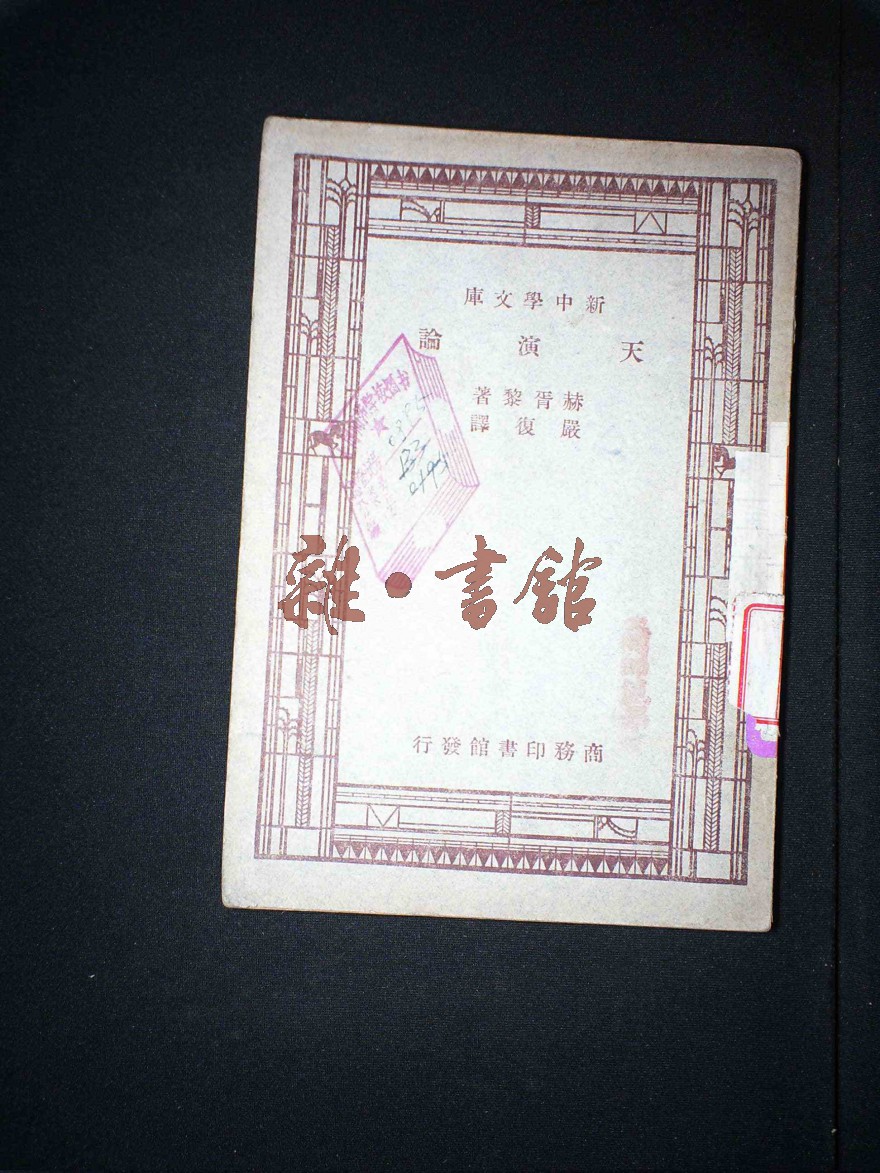 新中學文庫
天演論
赫胥黎著
嚴復譯
雜·書館
商務印書館發行